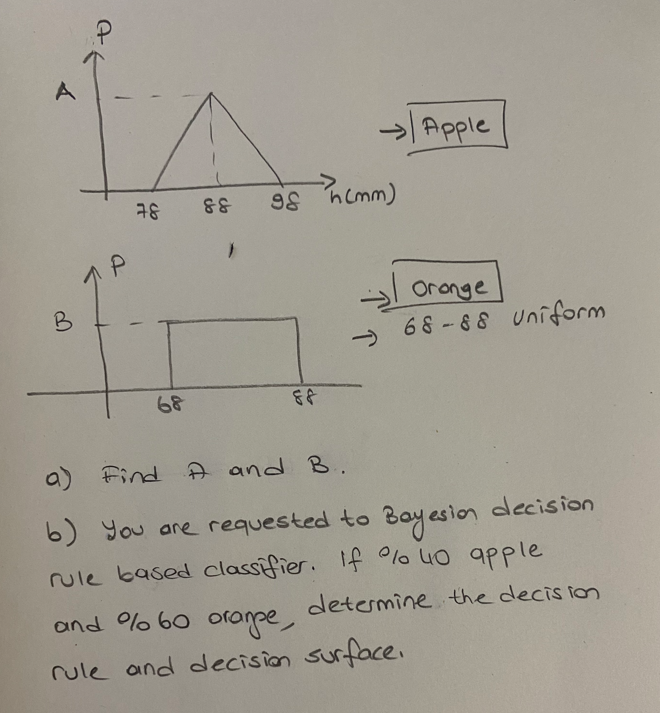 P
A
→ Apple
78 88 98 h(mm)
P
→ Orange
B
→ 68-88 uniform
68 88
a) Find A and B.
b) You are requested to Bayesion decision
rule based classifier. If %40 apple
and %60 orange, determine the decision
rule and decision surface.